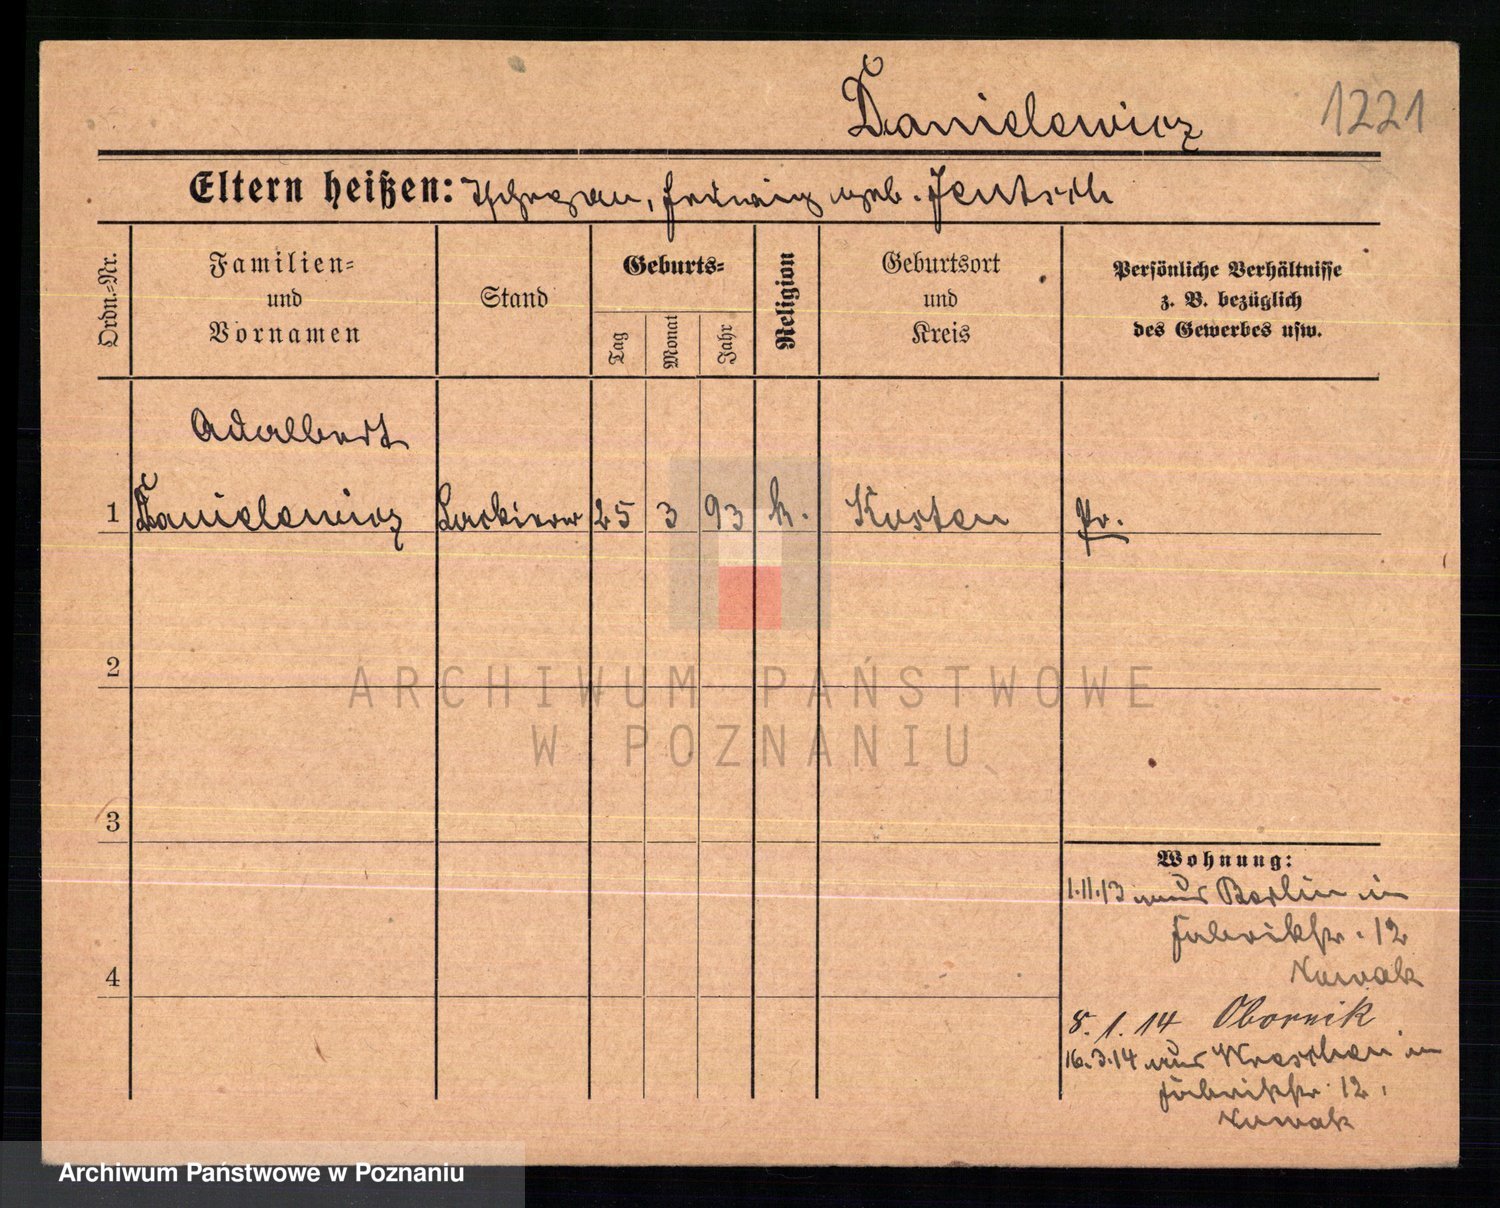 Danielewicz
1221
Eltern heißen: Hedwig geb. Jentsch
Ordn.=Nr.
Familien=
und
Vornamen
Stand
Geburts=
Tag
Monat
Jahr
Religion
Geburtsort
und
Kreis
Persönliche Verhältnisse
z. B. bezüglich
des Gewerbes usw.
Adalbert
1 Danielewicz Lackierer 25 3 93 k. Kosten Pr.
ARCHIWUM PAŃSTWOWE
W POZNANIU
2
3
4
Wohnung:
1.11.13 aus Berlin in
Fabrikstr. 12
Nowak
8. 1. 14 Obornik
16.3.14 aus Wreschen in
Fabrikstr. 12,
Nowak
Archiwum Państwowe w Poznaniu